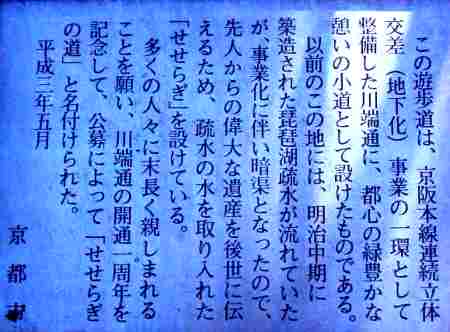 この遊歩道は、京阪本線連続立体
交差（地下化）事業の一環として
整備した川端通に、都心の緑豊かな
憩いの小道として設けたものである。
以前のこの地には、明治中期に
築造された琵琶湖疏水が流れていた
が、事業化に伴い暗渠となったので、
先人からの偉大な遺産を後世に伝
えるため、疏水の水を取り入れた
「せせらぎ」を設けている。
多くの人々に末長く親しまれる
ことを願い、川端通の開通一周年を
記念して、公募によって「せせらぎ
の道」と名付けられた。
平成三年五月
京都市